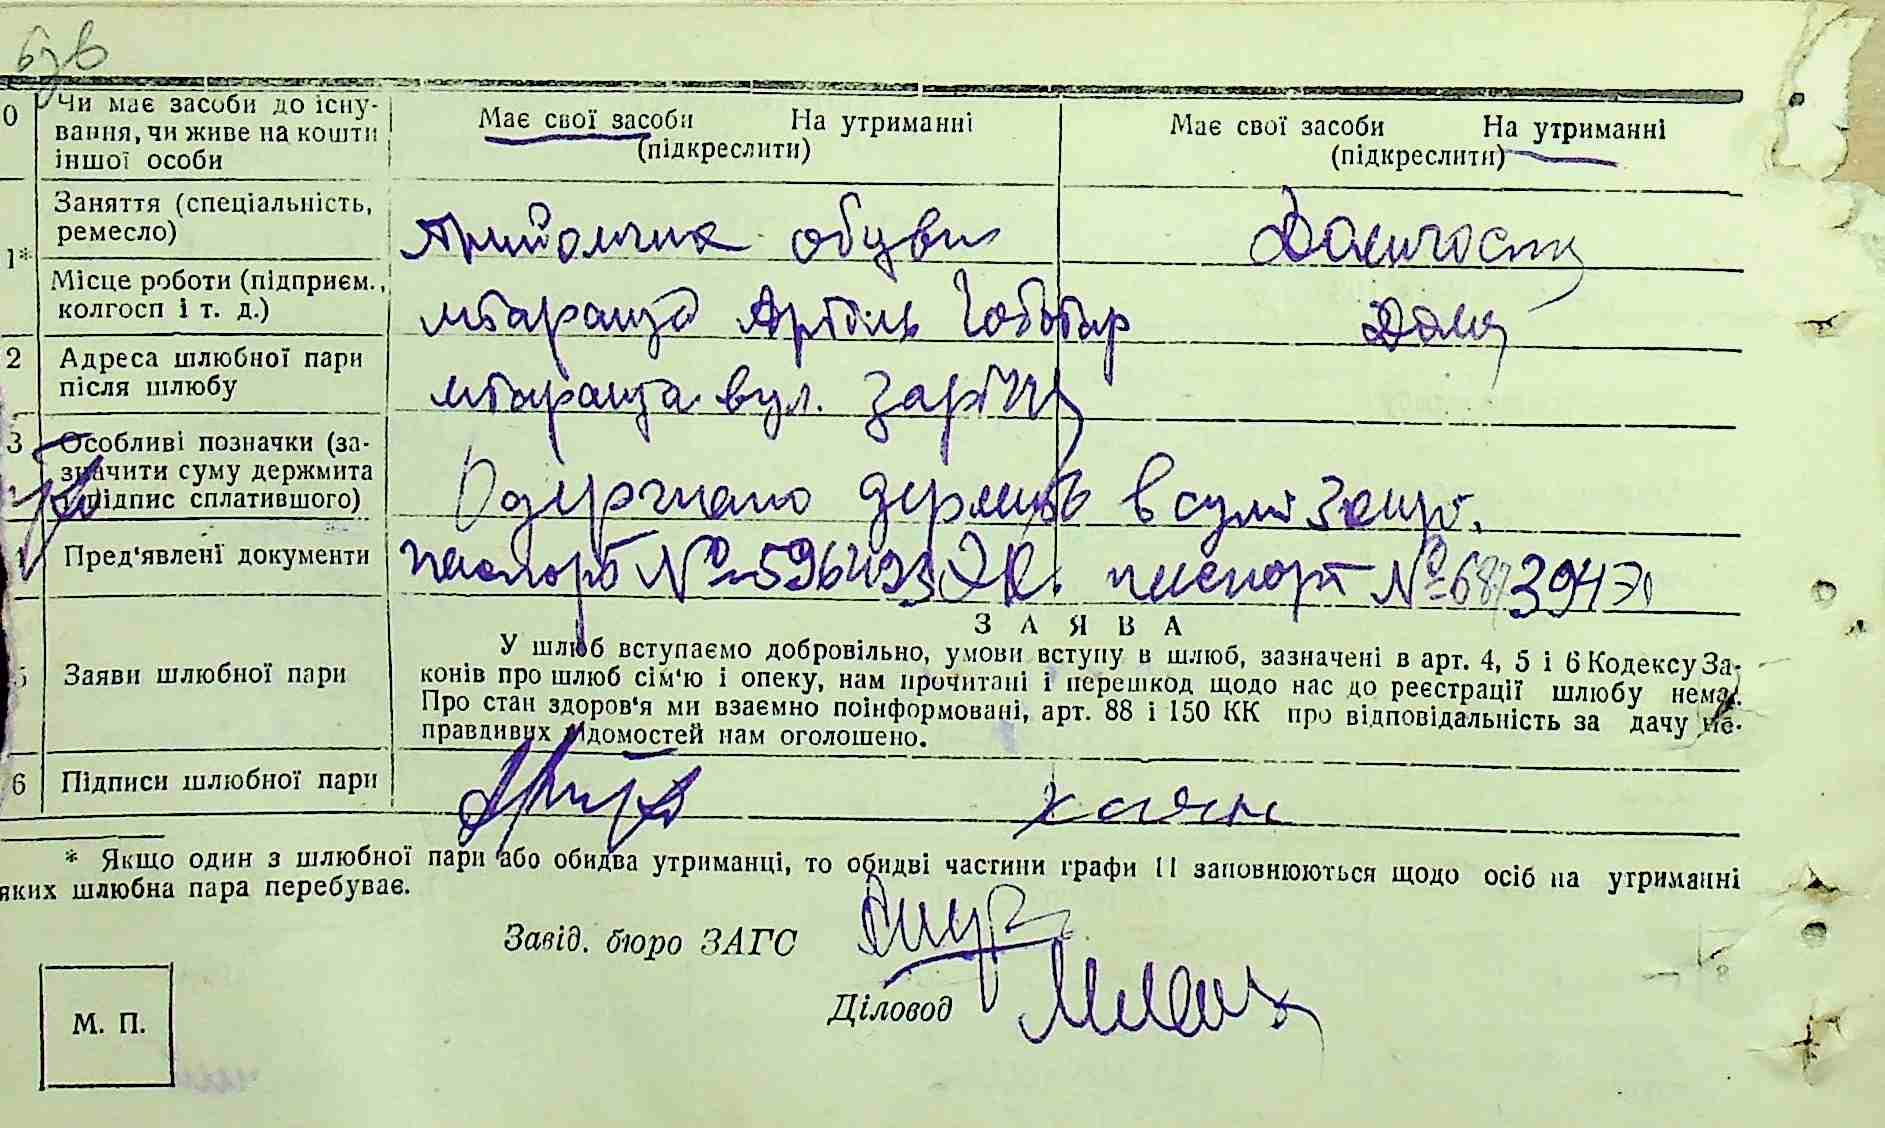 67в
0 Чи має засоби до існу-
вання, чи живе на кошти
іншої особи
Має свої засоби На утриманні
(підкреслити)
Має свої засоби На утриманні
(підкреслити)
1* Заняття (спеціальність,
ремесло)
обуви
Домогосп
Місце роботи (підприєм.,
колгосп і т. д.)
мтараща Артіль Чоботар Дома
2 Адреса шлюбної пари
після шлюбу
мтараща вул. Заріч
3 Особливі позначки (за-
значити суму держмита
і підпис сплатившого)
Одержано держмит в сумі 3
Пред'явлені документи
паспорт № 596493 паспорт № 687394
ЗАЯВА
Заяви шлюбної пари
У шлюб вступаємо добровільно, умови вступу в шлюб, зазначені в арт. 4, 5 і 6 Кодексу За-
конів про шлюб сім'ю і опеку, нам прочитані і перешкод щодо нас до реєстрації шлюбу нема.
Про стан здоров'я ми взаємно поінформовані, арт. 88 і 150 КК про відповідальність за дачу не-
правдивих відомостей нам оголошено.
6 Підписи шлюбної пари
* Якщо один з шлюбної пари або обидва утриманці, то обидві частини графи 11 заповнюються щодо осіб на утриманні
яких шлюбна пара перебуває.
Завід. бюро ЗАГС
Діловод
М. П.